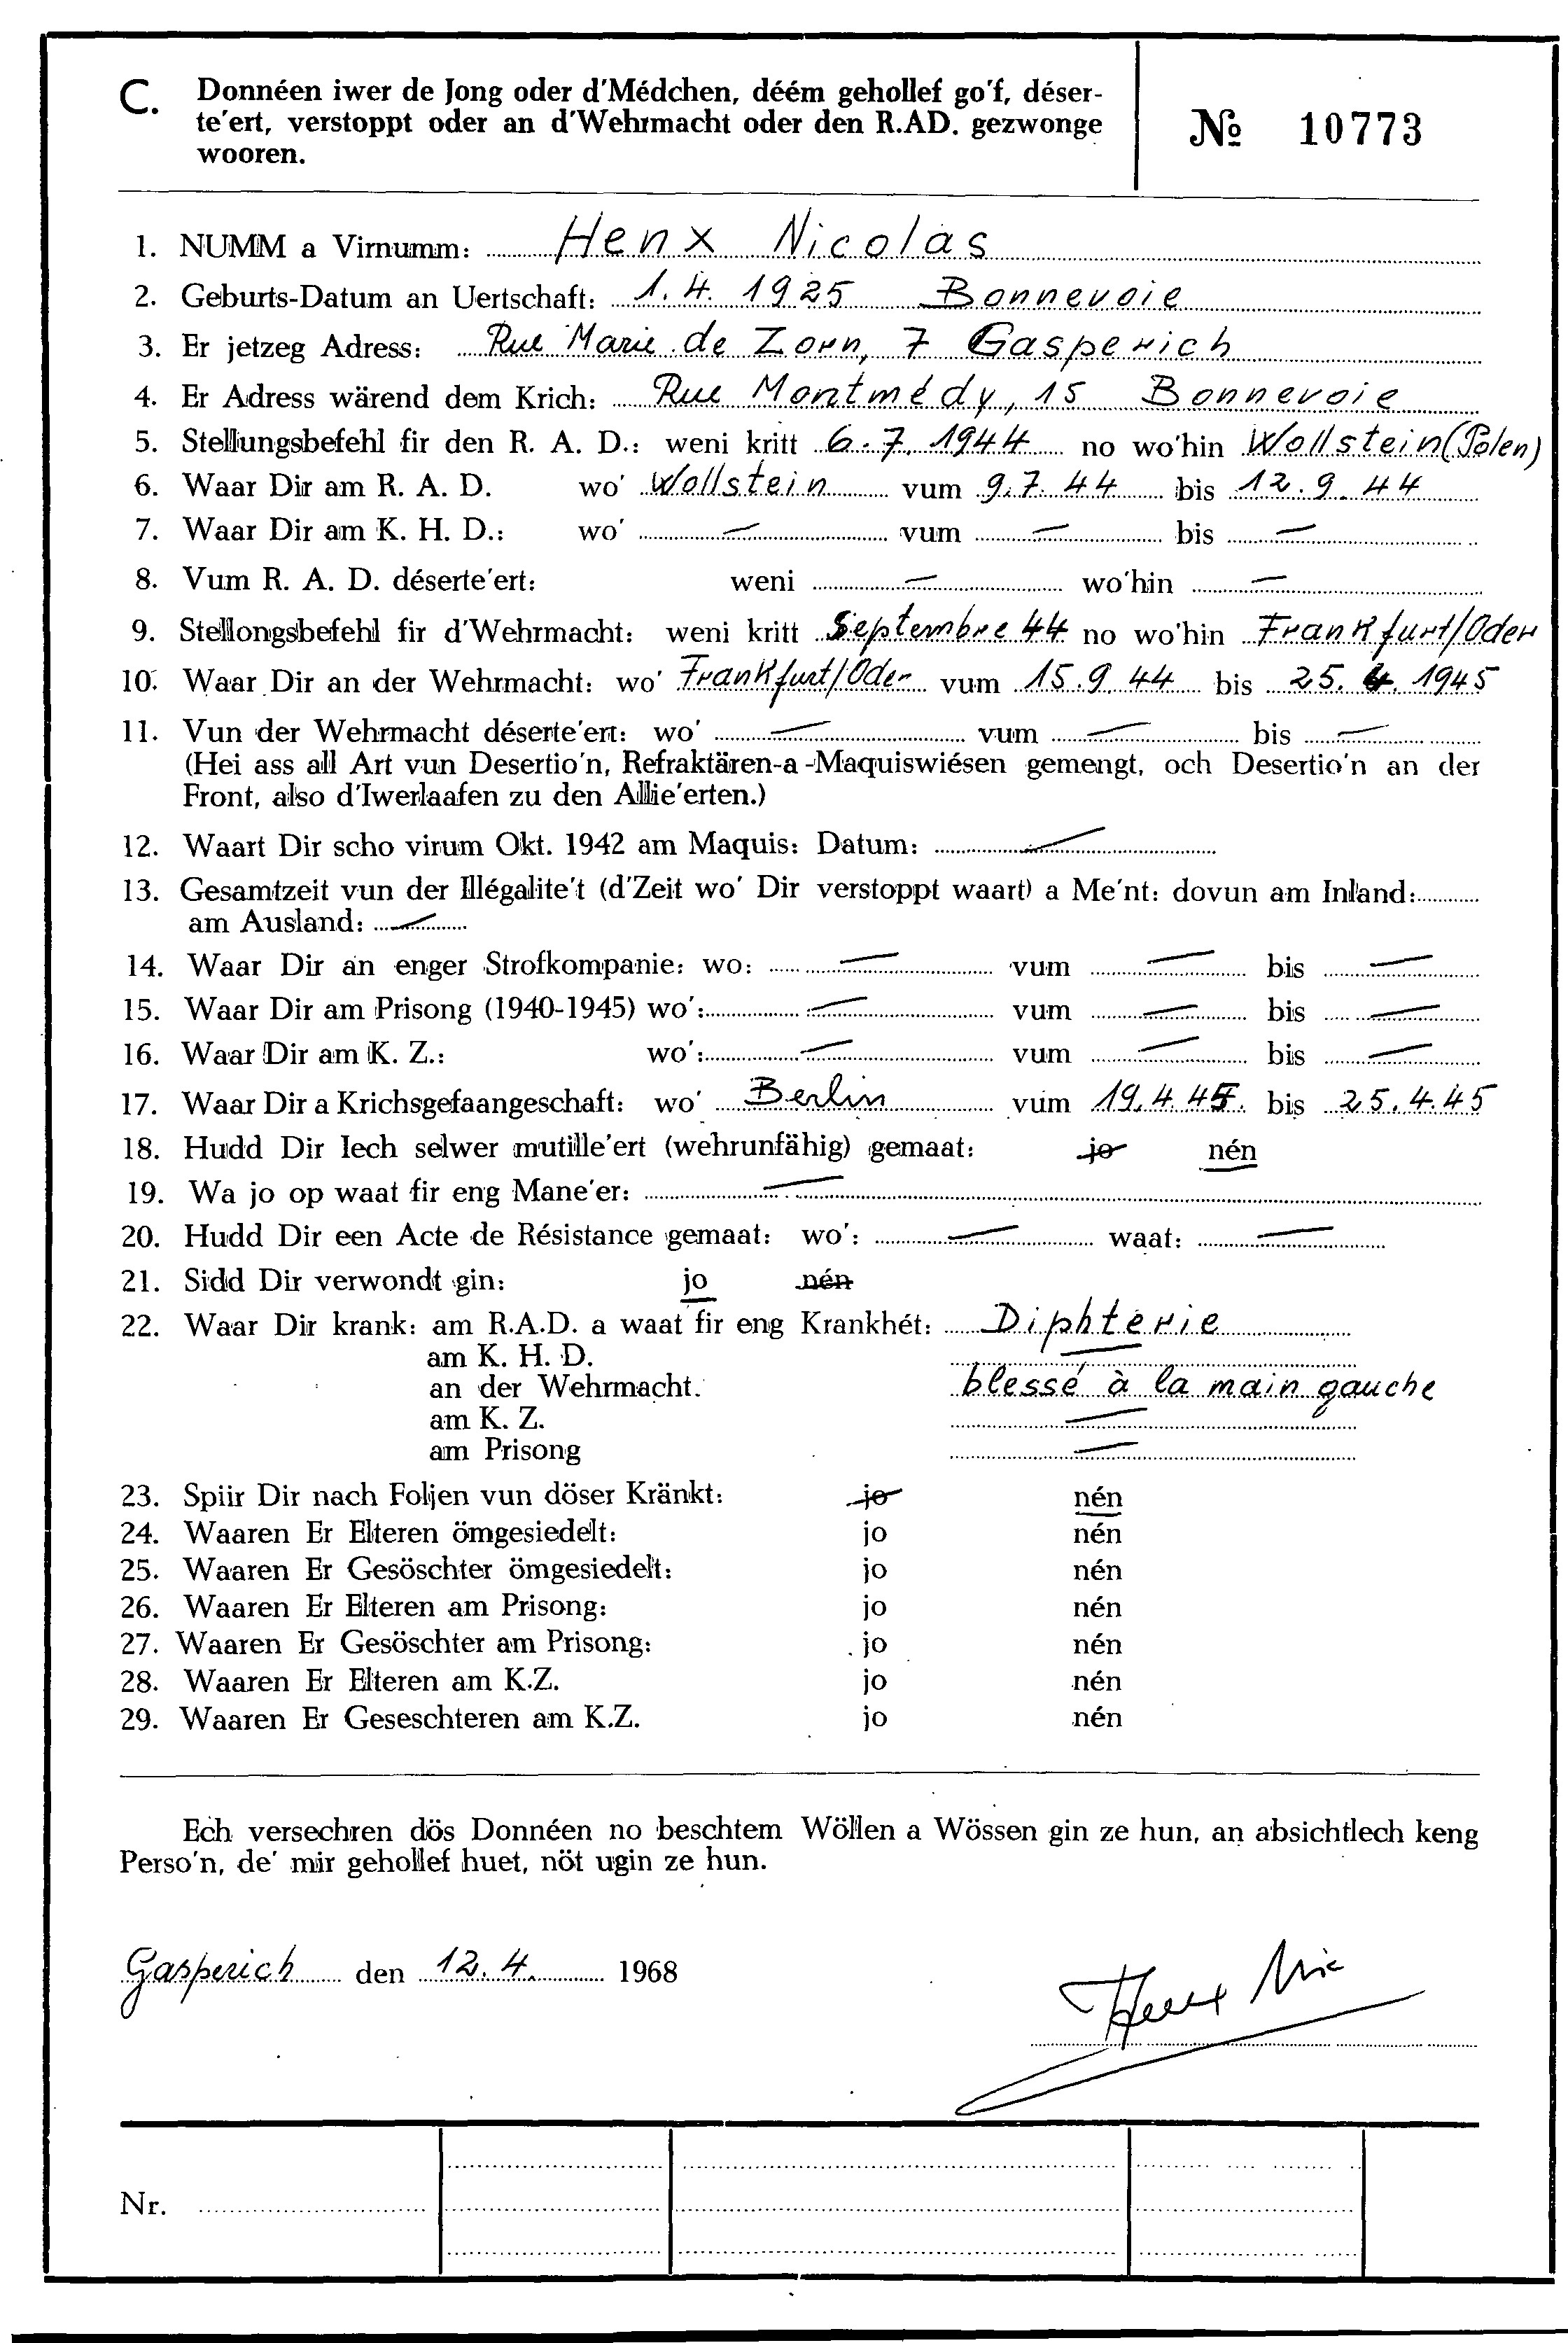 C. Donnéen iwer de Jong oder d'Médchen, déém gehollef go'f, déser-
te'ert, verstoppt oder an d'Wehrmacht oder den R.AD. gezwonge
wooren.
№ 10773
1. NUMM a Virnumm: Henx Nicolas
2. Geburts-Datum an Uertschaft: 1.4. 1925 Bonnevoie
3. Er jetzeg Adress: Rue Marie de Zorn, 7 Gasperich
4. Er Adress wärend dem Krich: Rue Montmédy, 15 Bonnevoie
5. Stellungsbefehl fir den R. A. D.: weni kritt 6.7.1944 no wo'hin Wollstein (Polen)
6. Waar Dir am R. A. D. wo' Wollstein vum 9.7.44 bis 12.9.44
7. Waar Dir am K. H. D.: wo' — vum — bis —
8. Vum R. A. D. déserte'ert: weni — wo'hin —
9. Stellongsbefehl fir d'Wehrmacht: weni kritt Septembre 44 no wo'hin Frankfurt/Oder
10. Waar Dir an der Wehrmacht: wo' Frankfurt/Oder vum 15.9.44 bis 25.4.1945
11. Vun der Wehrmacht déserte'ert: wo' — vum — bis —
(Hei ass all Art vun Desertio'n, Refraktären-a-Maquiswiésen gemengt, och Desertio'n an der
Front, also d'Iwerlaafen zu den Allie'erten.)
12. Waart Dir scho virum Okt. 1942 am Maquis: Datum: —
13. Gesamtzeit vun der Illégalite't (d'Zeit wo' Dir verstoppt waart) a Me'nt: dovun am Inland:
am Ausland: —
14. Waar Dir an enger Strofkompanie: wo: — vum — bis —
15. Waar Dir am Prisong (1940-1945) wo': — vum — bis —
16. Waar Dir am K. Z.: wo': — vum — bis —
17. Waar Dir a Krichsgefaangeschaft: wo' Berlin vum 19.4.45. bis 25.4.45
18. Hudd Dir Iech selwer mutille'ert (wehrunfähig) gemaat: jo nén
19. Wa jo op waat fir eng Mane'er: —
20. Hudd Dir een Acte de Résistance gemaat: wo': — waat: —
21. Sidd Dir verwondt gin: jo nén
22. Waar Dir krank: am R.A.D. a waat fir eng Krankhét: Diphterie
am K. H. D. —
an der Wehrmacht. blessé à la main gauche
am K. Z. —
am Prisong —
23. Spiir Dir nach Foljen vun döser Kränkt: jo nén
24. Waaren Er Elteren ömgesiedelt: jo nén
25. Waaren Er Gesöschter ömgesiedelt: jo nén
26. Waaren Er Elteren am Prisong: jo nén
27. Waaren Er Gesöschter am Prisong: jo nén
28. Waaren Er Elteren am K.Z. jo nén
29. Waaren Er Geseschteren am K.Z. jo nén
Ech versechren dös Donnéen no beschtem Wöllen a Wössen gin ze hun, an absichtlech keng
Perso'n, de' mir gehollef huet, nöt ugin ze hun.
Gasperich den 12.4. 1968
Henx Nic
Nr.